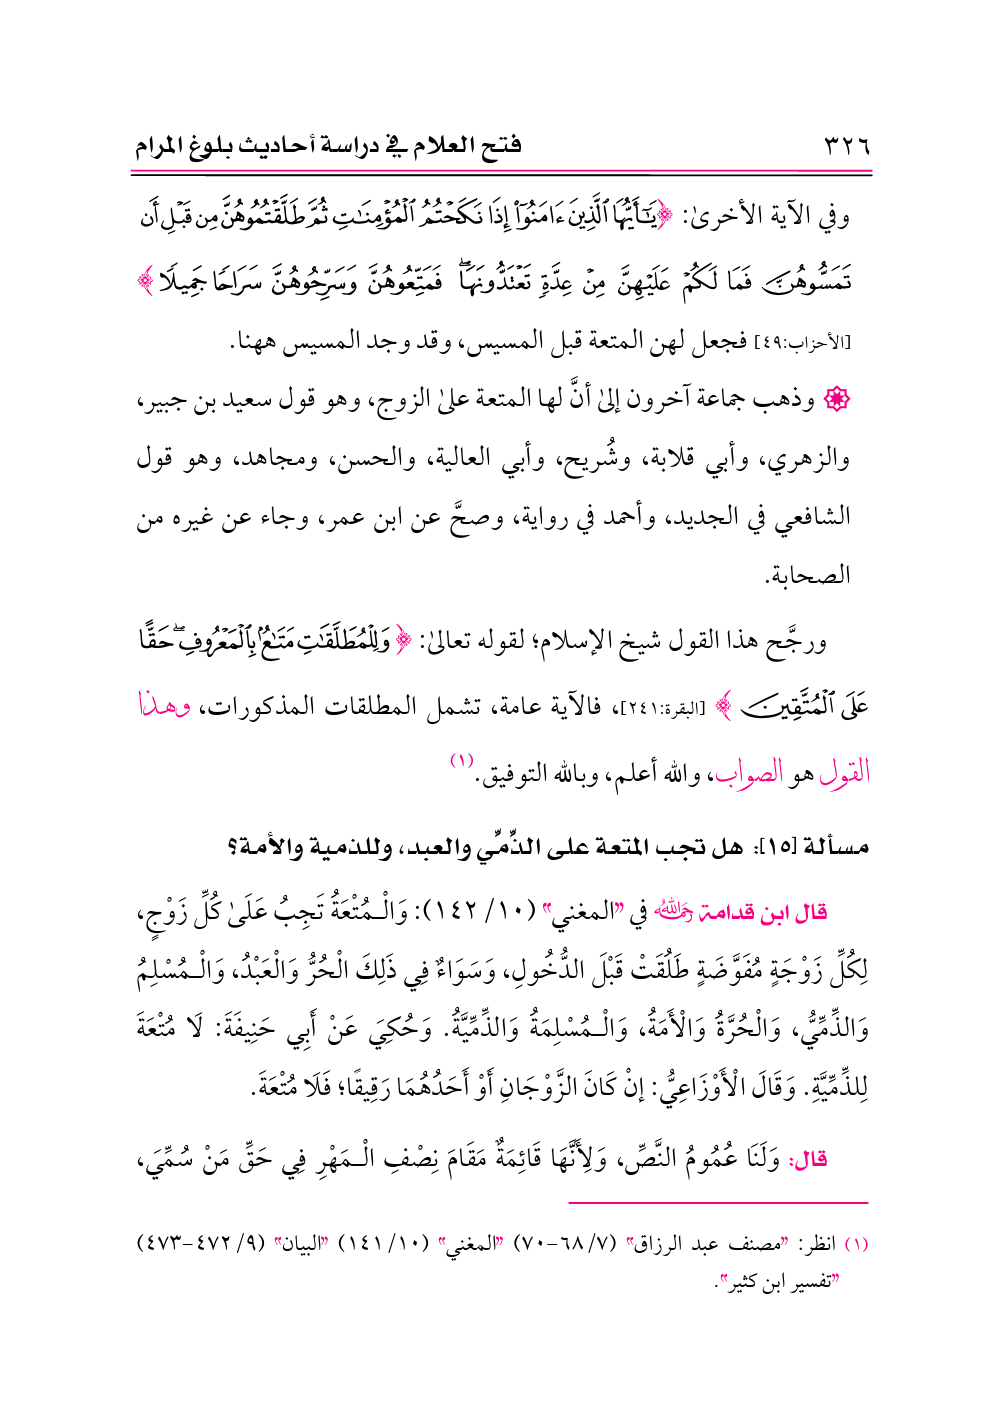 ٣٢٦ فتح العلام في دراسة أحاديث بلوغ المرام
وفي الآية الأخرىٰ: ﴿يَٰٓأَيُّهَا ٱلَّذِينَ ءَامَنُوٓا۟ إِذَا نَكَحْتُمُ ٱلْمُؤْمِنَٰتِ ثُمَّ طَلَّقْتُمُوهُنَّ مِن قَبْلِ أَن
تَمَسُّوهُنَّ فَمَا لَكُمْ عَلَيْهِنَّ مِنْ عِدَّةٍ تَعْتَدُّونَهَا ۖ فَمَتِّعُوهُنَّ وَسَرِّحُوهُنَّ سَرَاحًا جَمِيلًا﴾
[الأحزاب:٤٩] فجعل لهن المتعة قبل المسيس، وقد وجد المسيس ههنا.
وذهب جماعة آخرون إلىٰ أنَّ لها المتعة علىٰ الزوج، وهو قول سعيد بن جبير،
والزهري، وأبي قلابة، وشُريح، وأبي العالية، والحسن، ومجاهد، وهو قول
الشافعي في الجديد، وأحمد في رواية، وصحَّ عن ابن عمر، وجاء عن غيره من
الصحابة.
ورجَّح هذا القول شيخ الإسلام؛ لقوله تعالىٰ: ﴿وَلِلْمُطَلَّقَٰتِ مَتَٰعٌۢ بِٱلْمَعْرُوفِ ۖ حَقًّا
عَلَى ٱلْمُتَّقِينَ﴾ [البقرة:٢٤١]، فالآية عامة، تشمل المطلقات المذكورات، وهذا
القول هو الصواب، والله أعلم، وبالله التوفيق.(١)
مسألة [١٥]: هل تجب المتعة على الذِّمِّي والعبد، وللذمية والأمة؟
قال ابن قدامة رحمه الله في "المغني" (١٠/ ١٤٢): وَالْـمُتْعَةُ تَجِبُ عَلَىٰ كُلِّ زَوْجٍ،
لِكُلِّ زَوْجَةٍ مُفَوَّضَةٍ طَلُقَتْ قَبْلَ الدُّخُولِ، وَسَوَاءٌ فِي ذَلِكَ الْحُرُّ وَالْعَبْدُ، وَالْـمُسْلِمُ
وَالذِّمِّيُّ، وَالْحُرَّةُ وَالْأَمَةُ، وَالْـمُسْلِمَةُ وَالذِّمِّيَّةُ. وَحُكِيَ عَنْ أَبِي حَنِيفَةَ: لَا مُتْعَةَ
لِلذِّمِّيَّةِ. وَقَالَ الْأَوْزَاعِيُّ: إنْ كَانَ الزَّوْجَانِ أَوْ أَحَدُهُمَا رَقِيقًا؛ فَلَا مُتْعَةَ.
قال: وَلَنَا عُمُومُ النَّصِّ، وَلِأَنَّهَا قَائِمَةٌ مَقَامَ نِصْفِ الْـمَهْرِ فِي حَقِّ مَنْ سُمِّيَ،
(١) انظر: "مصنف عبد الرزاق" (٧/ ٦٨-٧٠) "المغني" (١٠/ ١٤١) "البيان" (٩/ ٤٧٢-٤٧٣)
"تفسير ابن كثير".